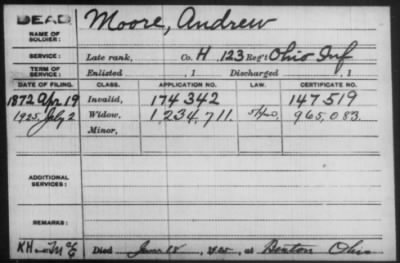 DEAD. Moore, Andrew
NAME OF SOLDIER:
SERVICE: Late rank, Co. H, 123 Reg't Ohio Inf
TERM OF SERVICE: Enlisted , 1 Discharged , 1
DATE OF FILING. CLASS. APPLICATION NO. LAW. CERTIFICATE NO.
1872 Apr 19 Invalid, 174342 147519
1925, July 2 Widow, 1,234,711. 965,083.
Minor,
ADDITIONAL SERVICES:
REMARKS:
Died June 18, at Benton Ohio